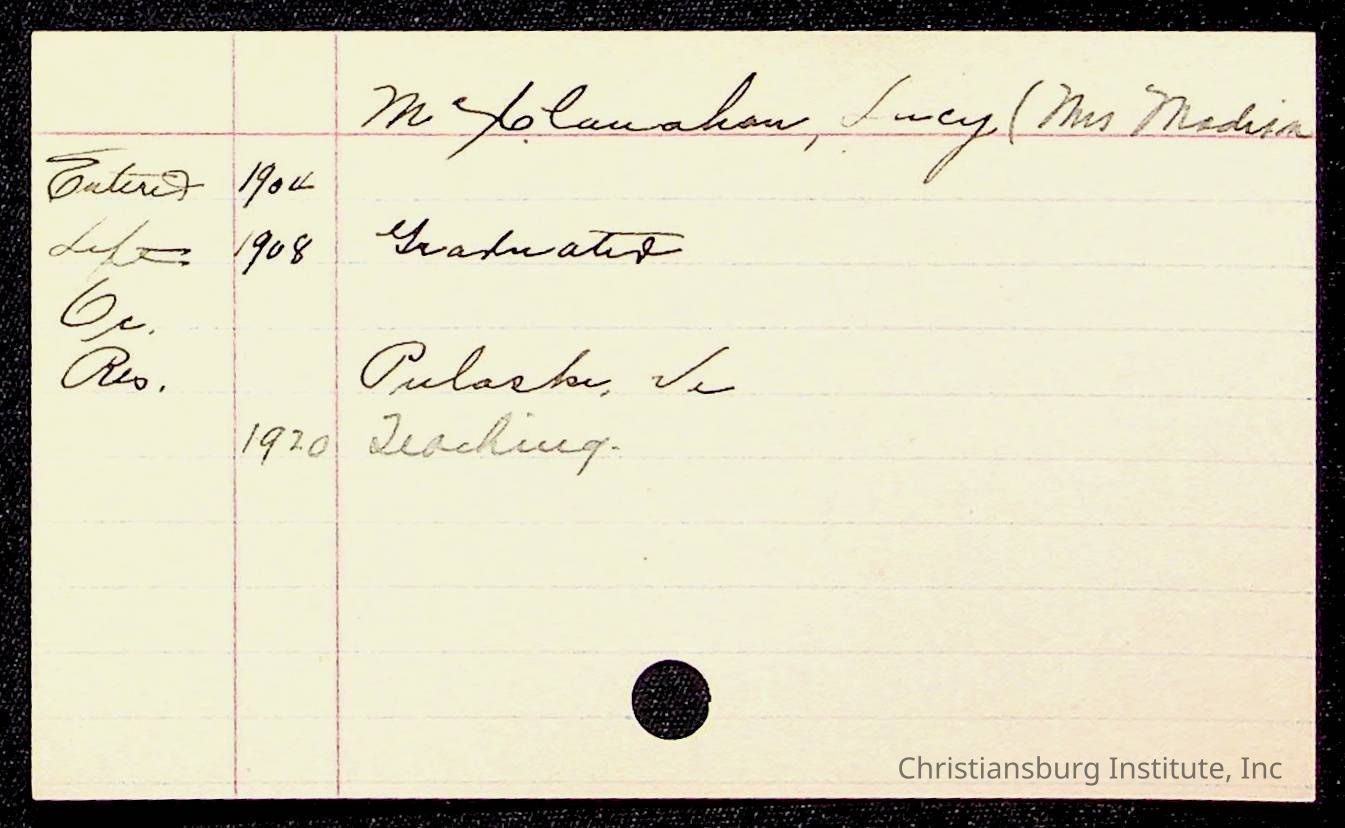 McClanahan, Lucy (Mrs Madison
Entered 1904
Left 1908 Graduated
Oc.
Res. Pulaski, Va
1920 Teaching.
Christiansburg Institute, Inc